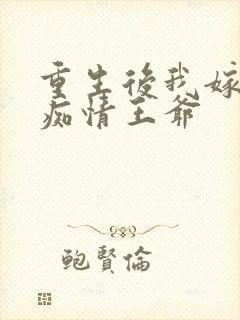 重生後我嫁
痴情王爺
鮑賢倫